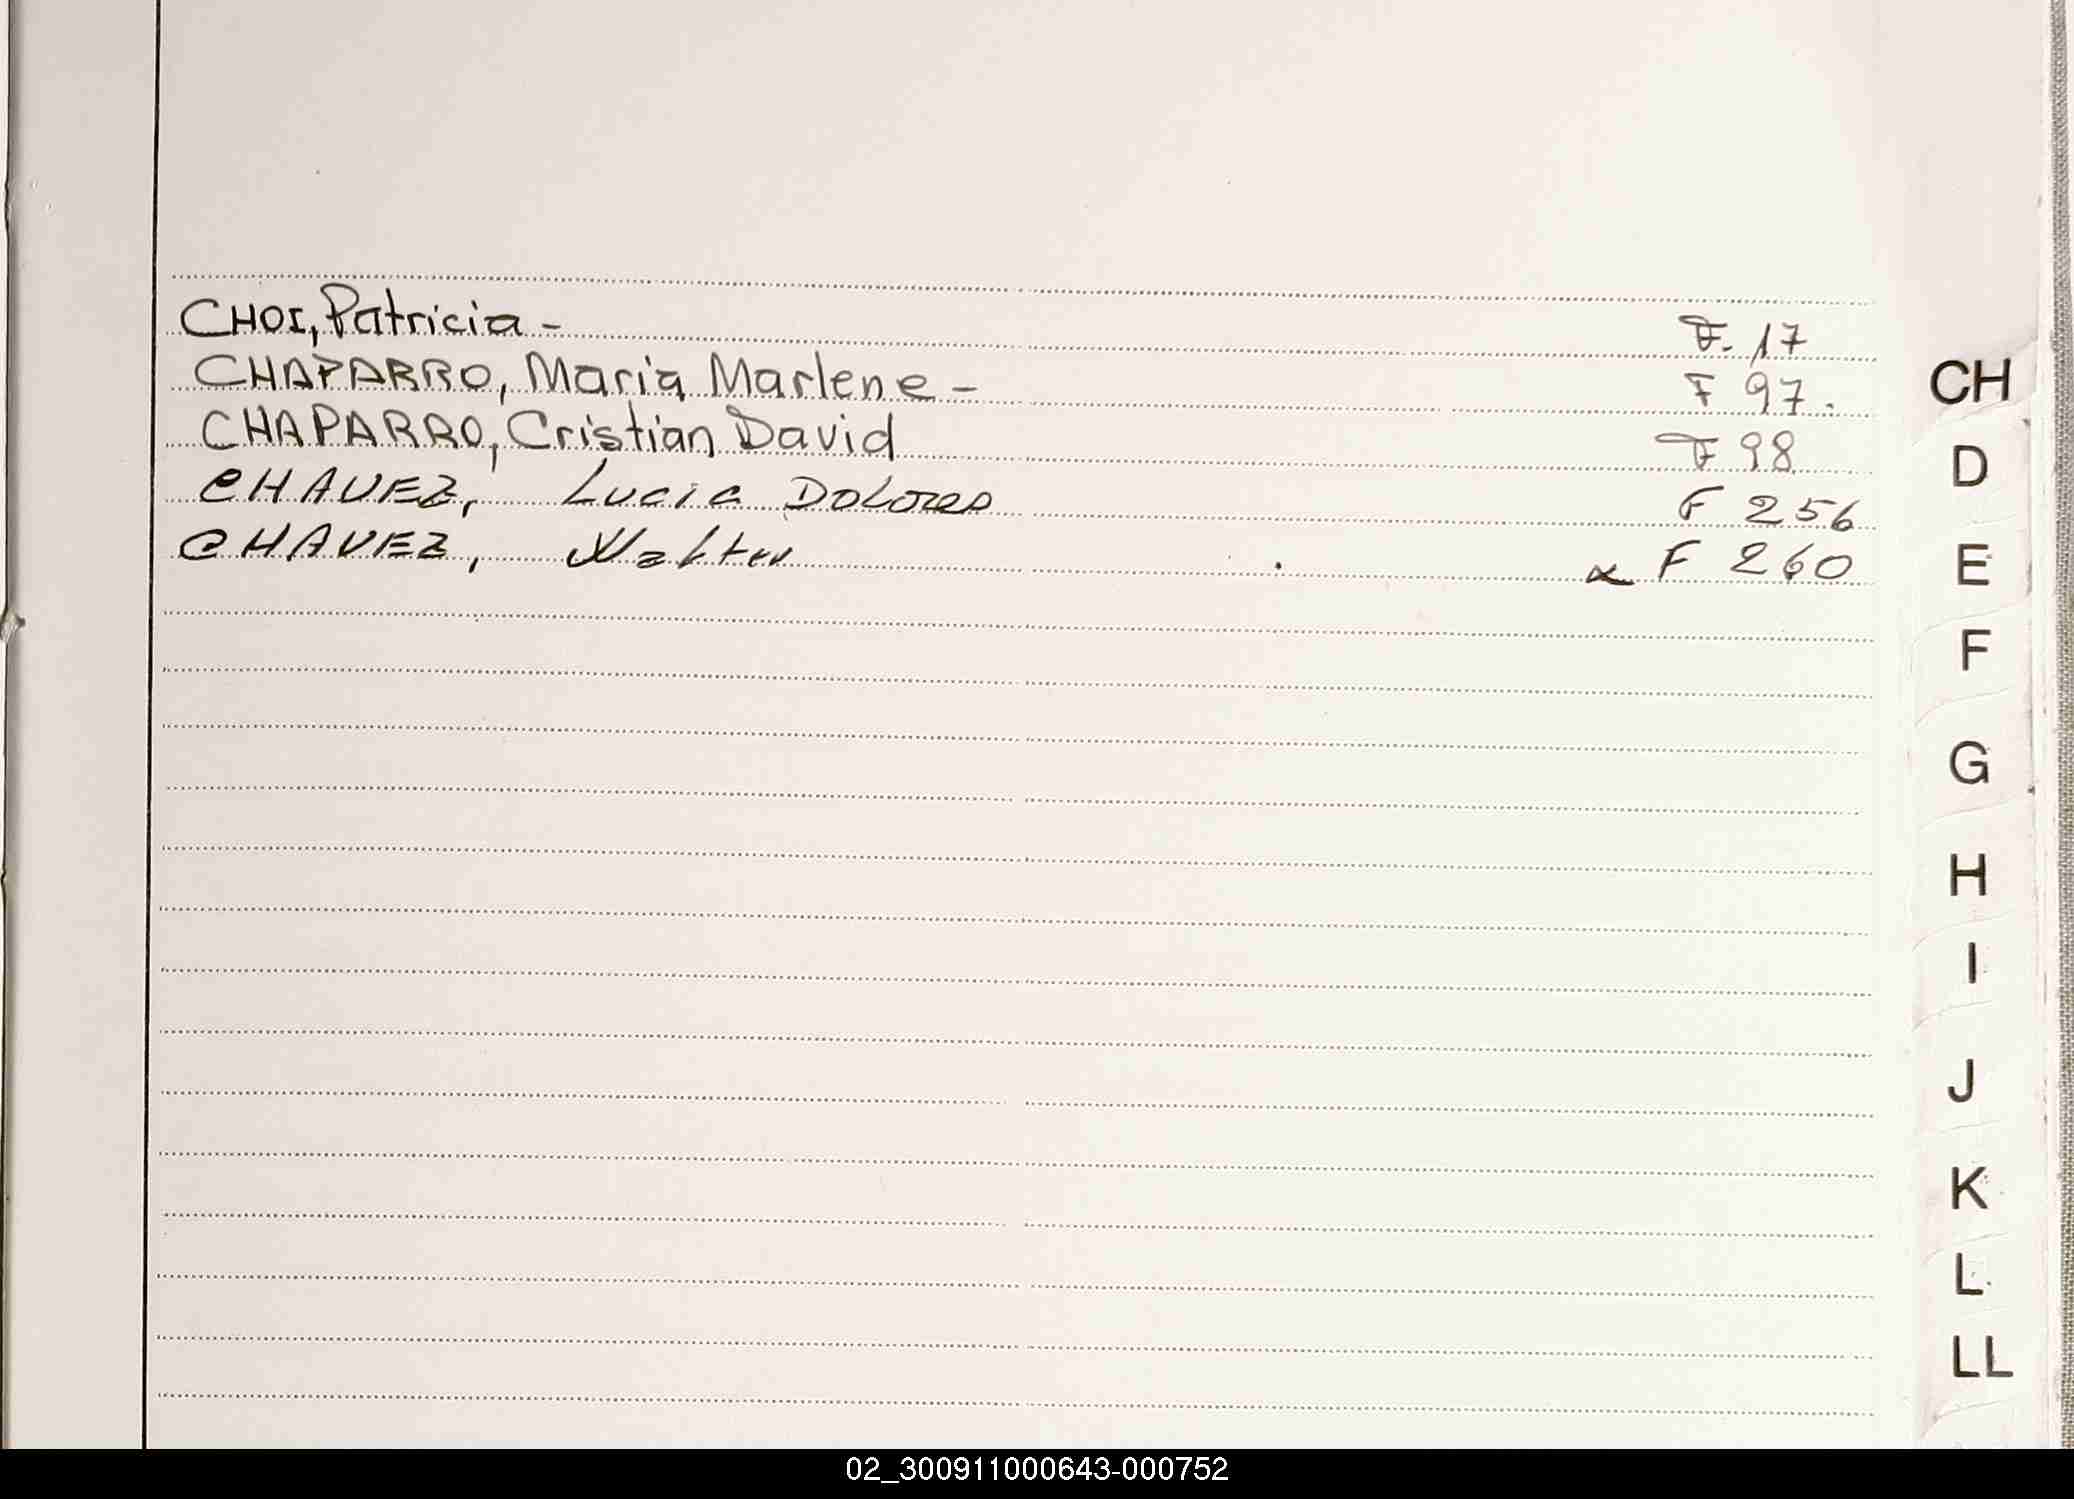 CHOI, Patricia - F. 17
CHAPARRO, Maria Marlene - F 97.
CHAPARRO, Cristian David F 98
CHAVEZ, Lucia DOLORES F 256
CHAVEZ, Walter F 260
CH
D
E
F
G
H
I
J
K
L
LL
02_300911000643-000752